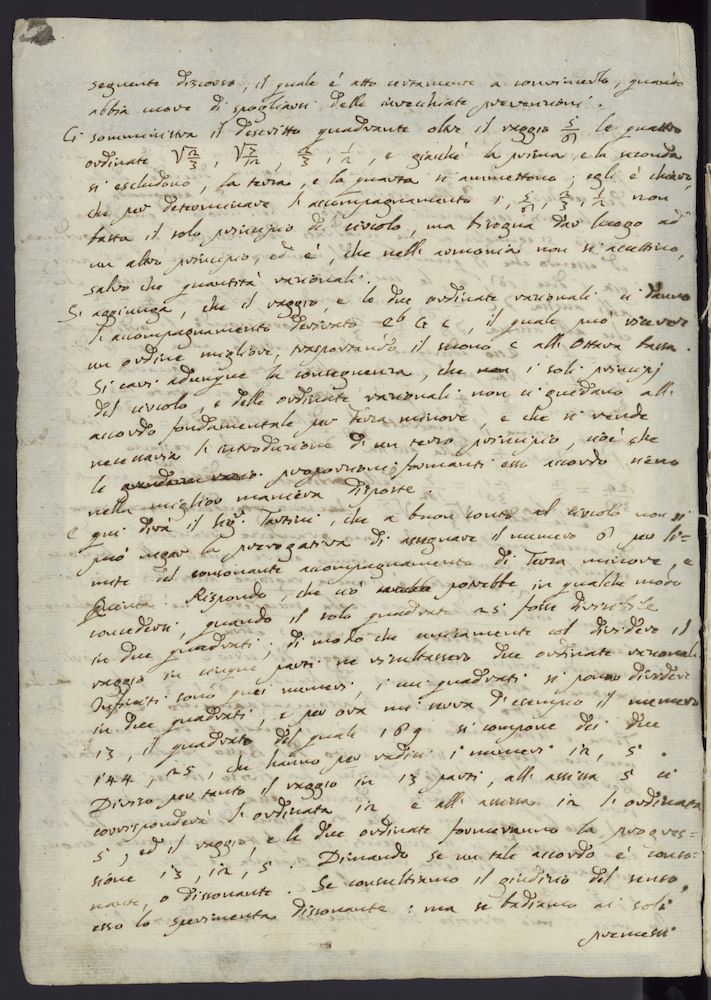 seguente discorso, il quale è atto certamente a convincerlo, quando
abbia cuore di spogliarsi delle invecchiate prevenzioni.
Ci somministra il descritto quadrante oltre il raggio 5/6 le quattro
ordinate √2/3, √7/12, 2/3, 1/2, e giacchè la prima, e la seconda
si escludono, la terza, e la quarta si ammettono; egli è chiaro,
che per determinare l'accompagnamento 1, 5/6, 2/3, 1/2 non
basta il solo principio di circolo, ma bisogna dar luogo ad
un altro principio, ed è, che nelle armonia non si accettino,
salvo che quantità razionali.
Si aggiunga, che il raggio, e le due ordinate razionali ci danno
l'accompagnamento derivato eb G c, il quale può ricevere
un ordine migliore, trasportando il suono c all'Ottava bassa.
Si cavi adunque la conseguenza, che i soli principj
del circolo, e delle ordinate razionali non ci guidano all'
accordo fondamentale per Terza minore, e che si rende
necessaria l'introduzione di un terzo principio, cioè che
le proporzioni formanti esso accordo sieno
nella miglior maniera disposte.
E qui dirà il Sigr. Tartini, che a buon conto al circolo non si
può negar la prerogativa di assegnare il numero 6 per li=
mite del consonante accompagnamento di Terza minore, e
Quinta. Rispondo, che ciò potrebbe in qualche modo
concedersi, quando il solo quadrato 25 fosse divisibile
in due quadrati; di modo che unicamente col dividere il
raggio in cinque parti ne risultassero due ordinate razionali.
Infiniti sono quei numeri, i cui quadrati si posson dividere
in due quadrati, e per ora mi serva d'esempio il numero
13, il quadrato del quale 169 si compone dei due
144, 25, che hanno per radici i numeri 12, 5.
Diviso per tanto il raggio in 13 parti, all'assissa 5 ci
corrisponderà l'ordinata 12 e all'assissa 12 l'ordinata
5, ed il raggio, e le due ordinate formeranno la progres=
sione 13, 12, 5. Dimando se un tale accordo è conso=
nante, o dissonante. Se consultiamo il giudizio del senso,
esso lo sperimenta dissonante: ma se badiamo ai soli
premessi